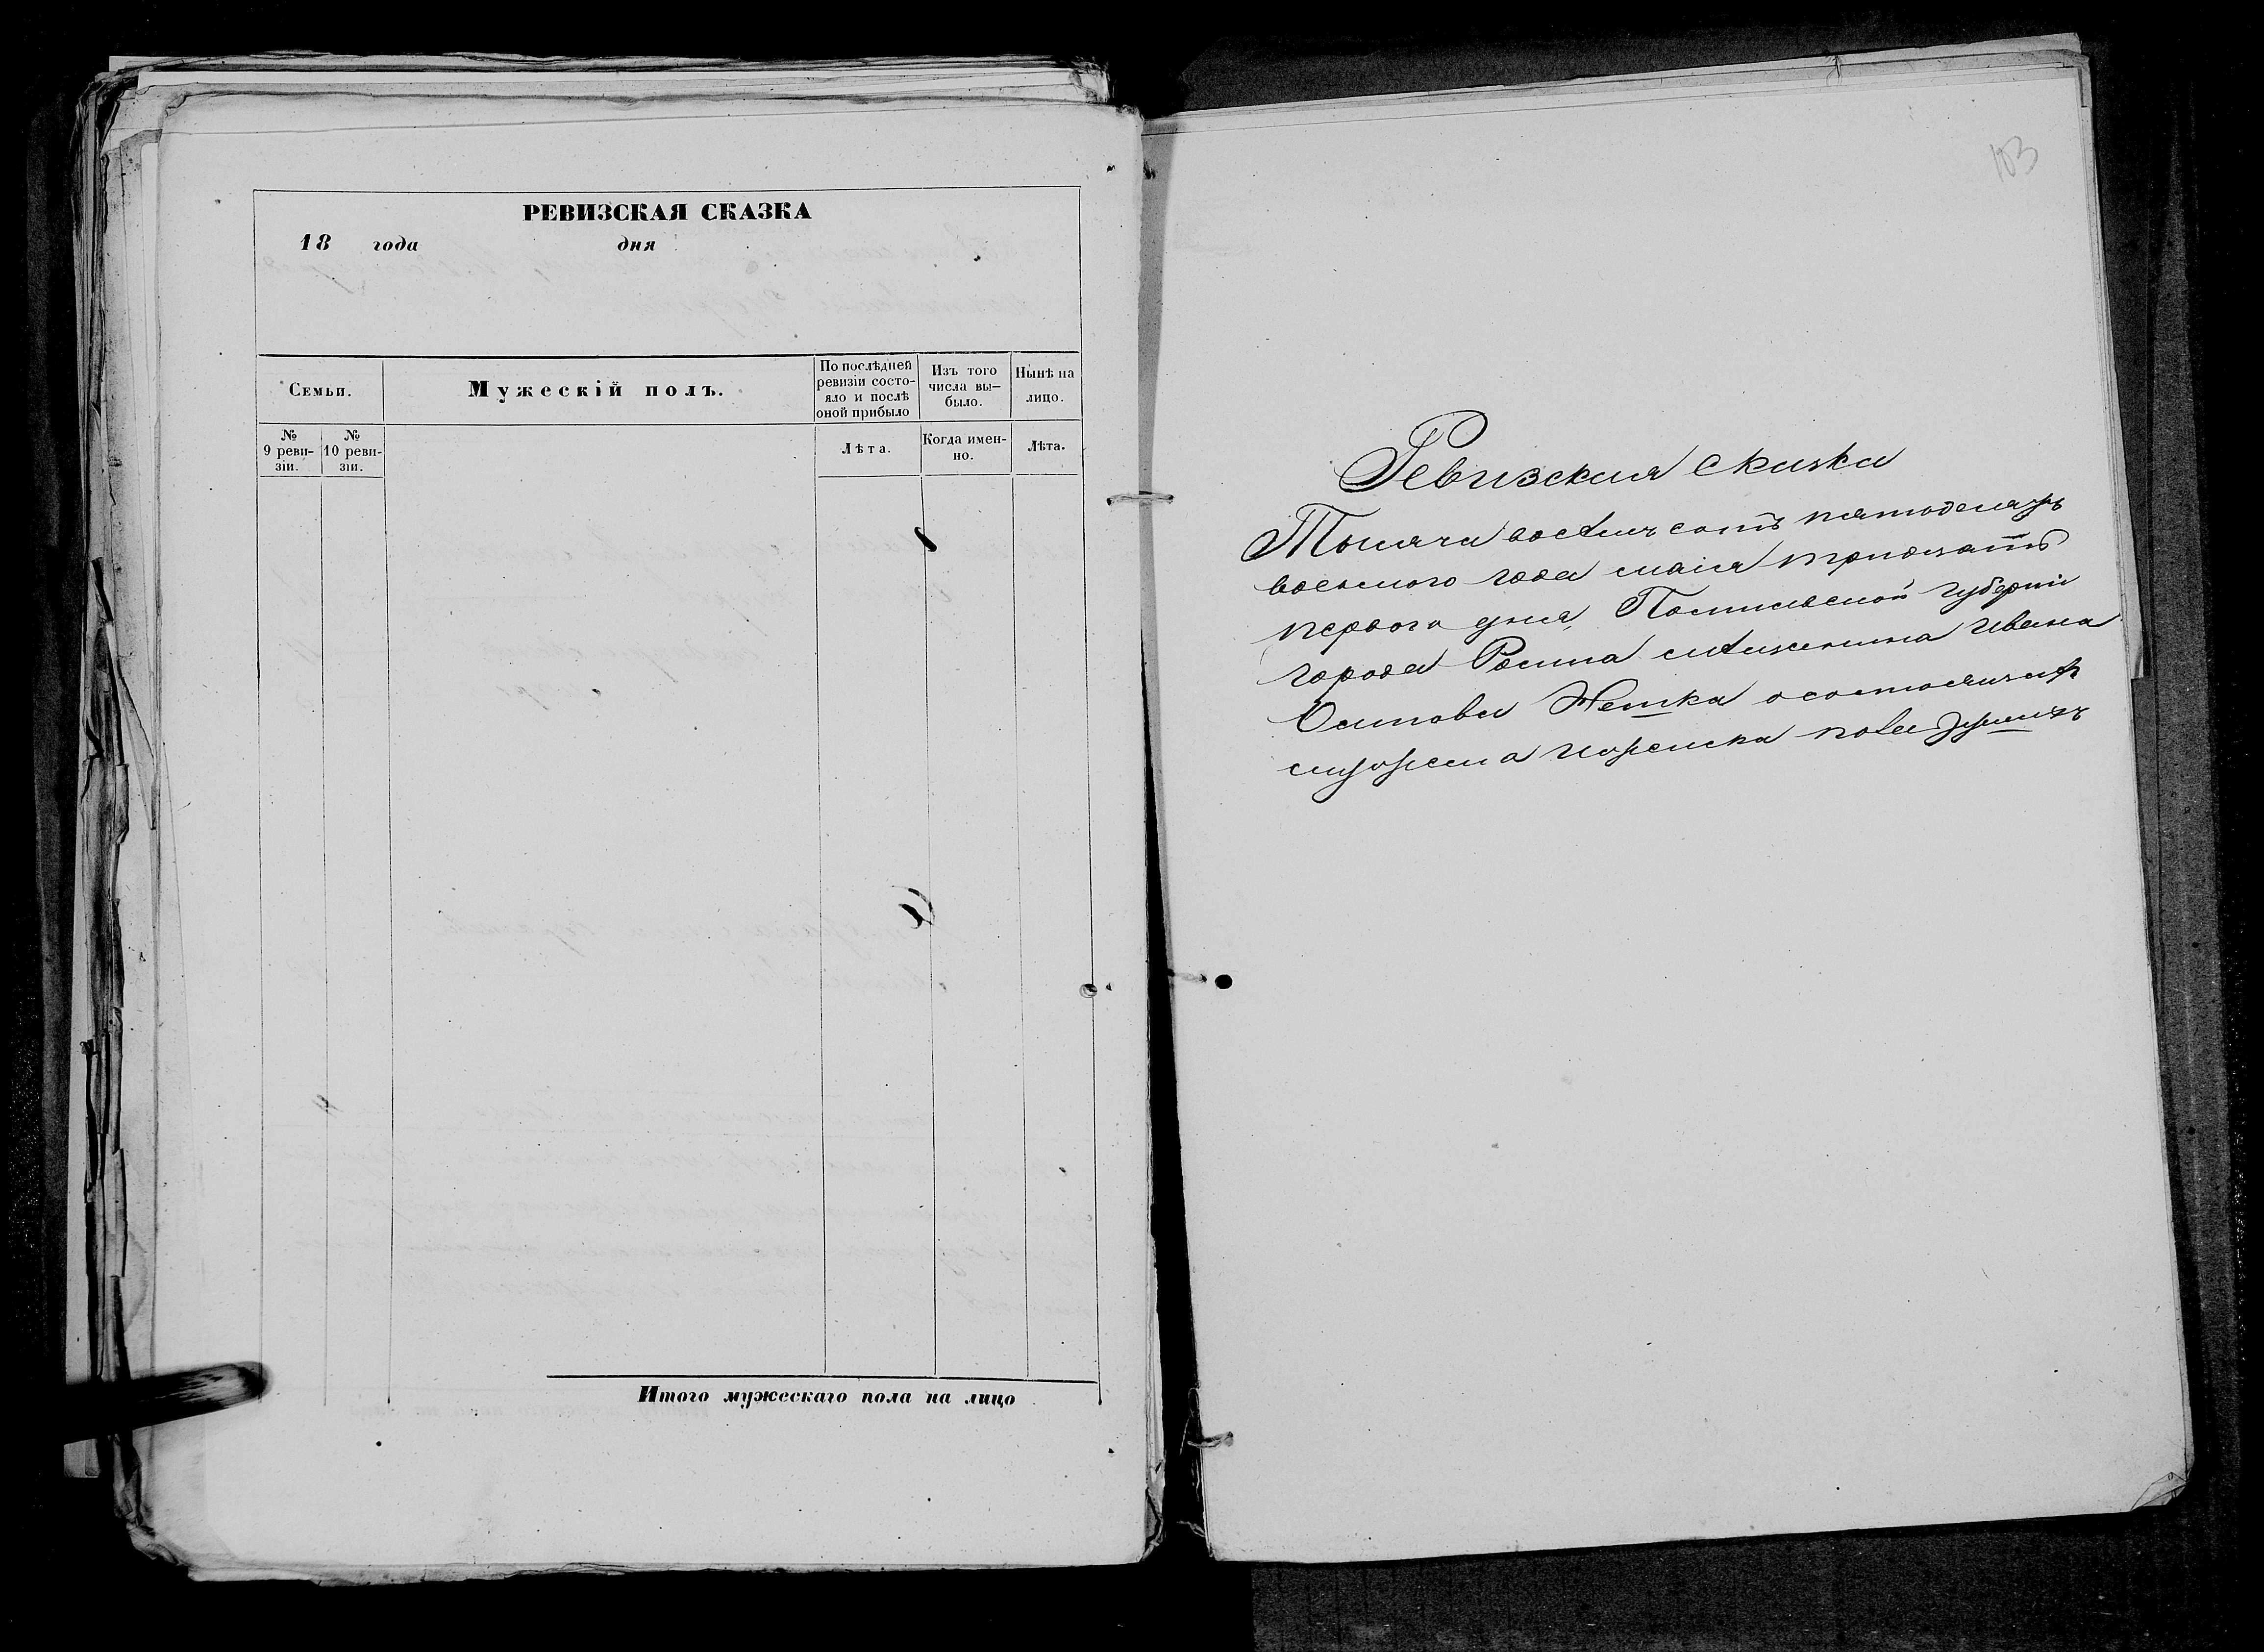 РЕВИЗСКАЯ СКАЗКА
18 года дня
Семьи.
Мужескій полъ.
По послѣдней ревизіи состо-
яло и послѣ оной прибыло
Изъ того числа вы-
было.
Нынѣ на лицо.
№ 9 реви-
зіи.
№ 10 реви-
зіи.
Лѣта.
Когда имен-
но.
Лѣта.
Итого мужескаго пола на лицо
103
Ревизская сказка
Тысяча восемь сотъ пятьдесятъ
восьмого года маія тридцать
первого дня, губерніи
города мѣщанина Ивана
Осипова о состоящихъ
мужеска и женска пола душахъ